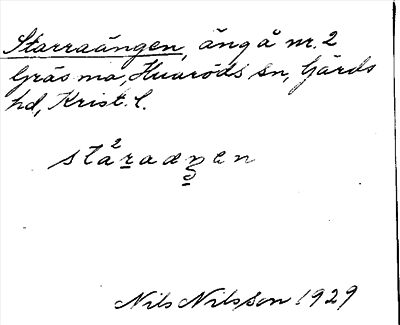 Starraängen, äng å nr. 2
Gräs ma, Huaröds sn, Gärds
hd, Krist. l.
stȧ²ṟaæn̲en
Nils Nilsson 1929